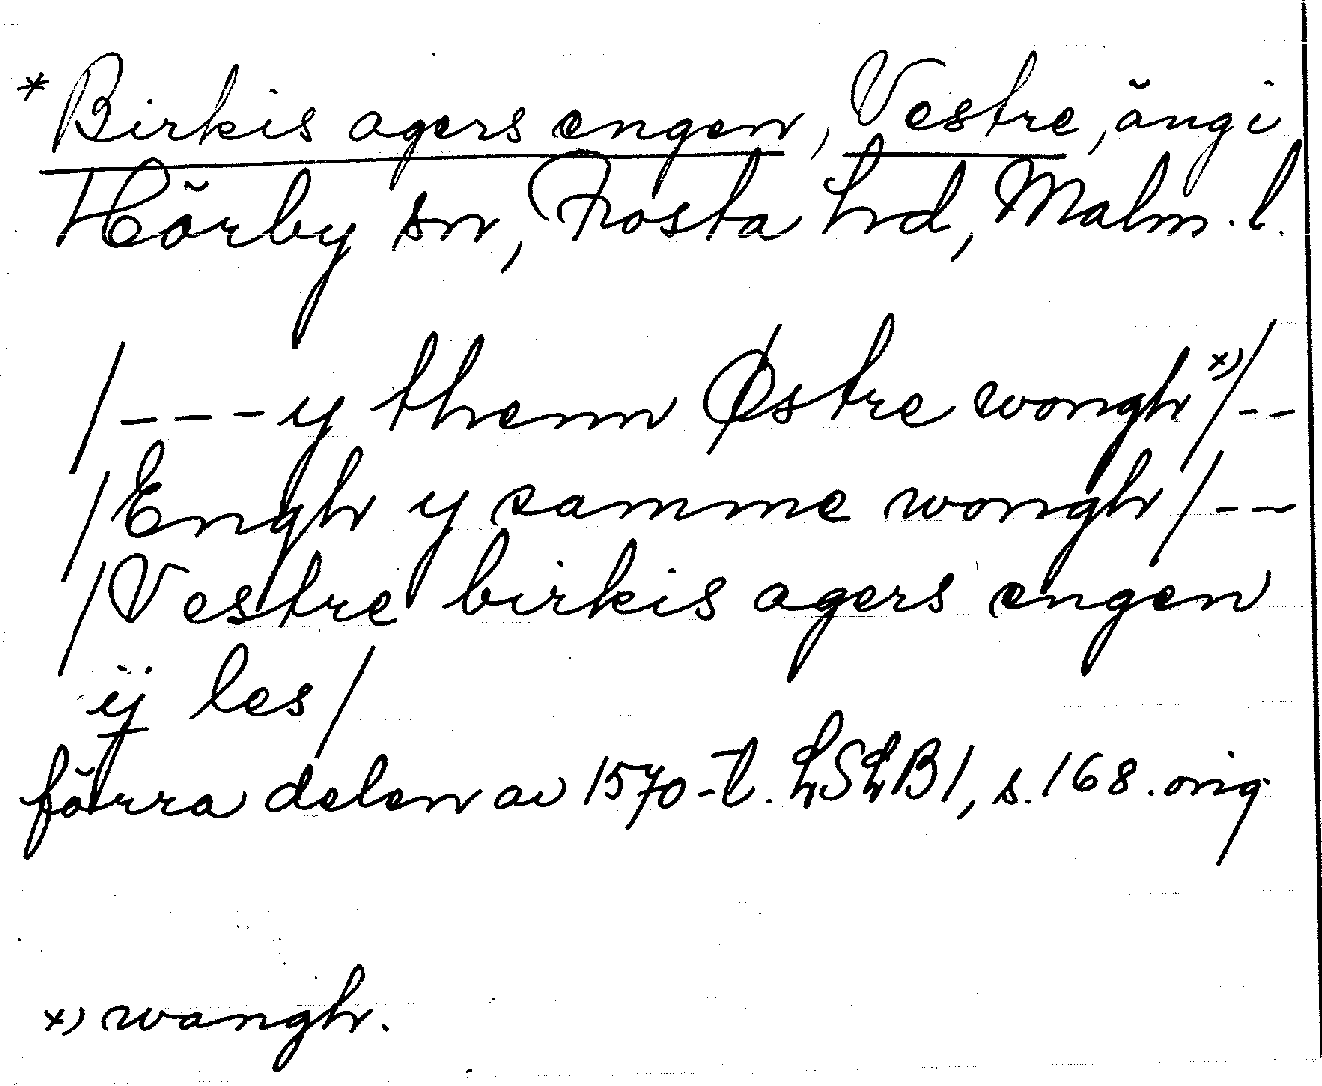 * Birkis agers engen, Vestre, äng i
Hörby sn, Frosta hd, Malm. l.
/---y thenn Østre wongh x)/--
/Engh y samme wongh/--
/Vestre birkis agers engen
ÿ les/
förra delen av 1570-t. LSLB1, s. 168. orig
x) wangh.